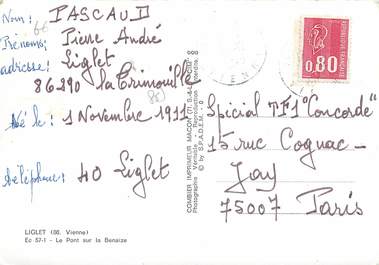 Nom: PASCAUD
Prénoms: Pierre André
adresse: Liglet
86290 la Trimouille
Né le: 1 Novembre 1911
téléphone: 40 Liglet
LIGLET (86. Vienne)
Ec 57-1 - Le Pont sur la Benaize
COMBIER IMPRIMEUR MACON (71. S.-&-L.)
© by S.P.A.D.E.M.
RÉPUBLIQUE FRANÇAISE
0,80
Spicial TF1 "Concorde"
15 ruc Cognac-
Jay
75007 Paris